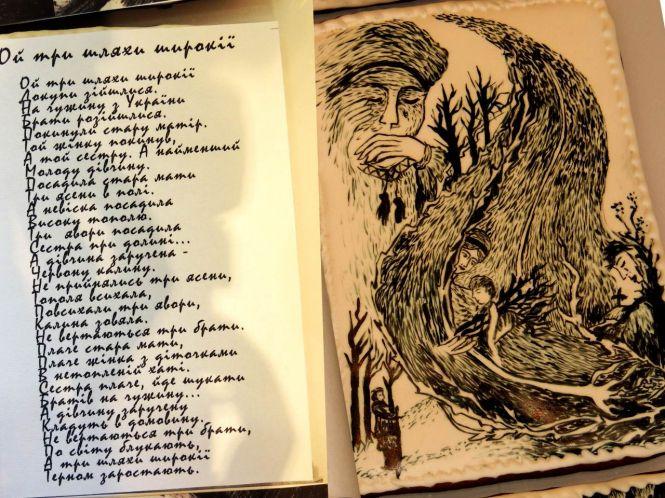 Ой три шляхи широкії
Ой три шляхи широкії
Докупи зійшлися.
На чужину з України
Брати розійшлися.
Покинули стару матір.
Той жінку покинув,
А той сестру. А найменший
Молоду дівчину.
Посадила стара мати
Три ясени в полі.
А невістка посадила
Високу тополю.
Три явори посадила
Сестра при долині...
А дівчина заручена -
Червону калину.
Не прийнялись три ясени,
Тополя всихала,
Повсихали три явори,
Калина зовяла.
Не вертаються три брати.
Плаче стара мати,
Плаче жінка з діточками
В нетопленій хаті.
Сестра плаче, йде шукати
Братів на чужину...
А дівчину заручену
Кладуть в домовину.
Не вертаються три брати,
По світу блукають,
А три шляхи широкії
Терном заростають.